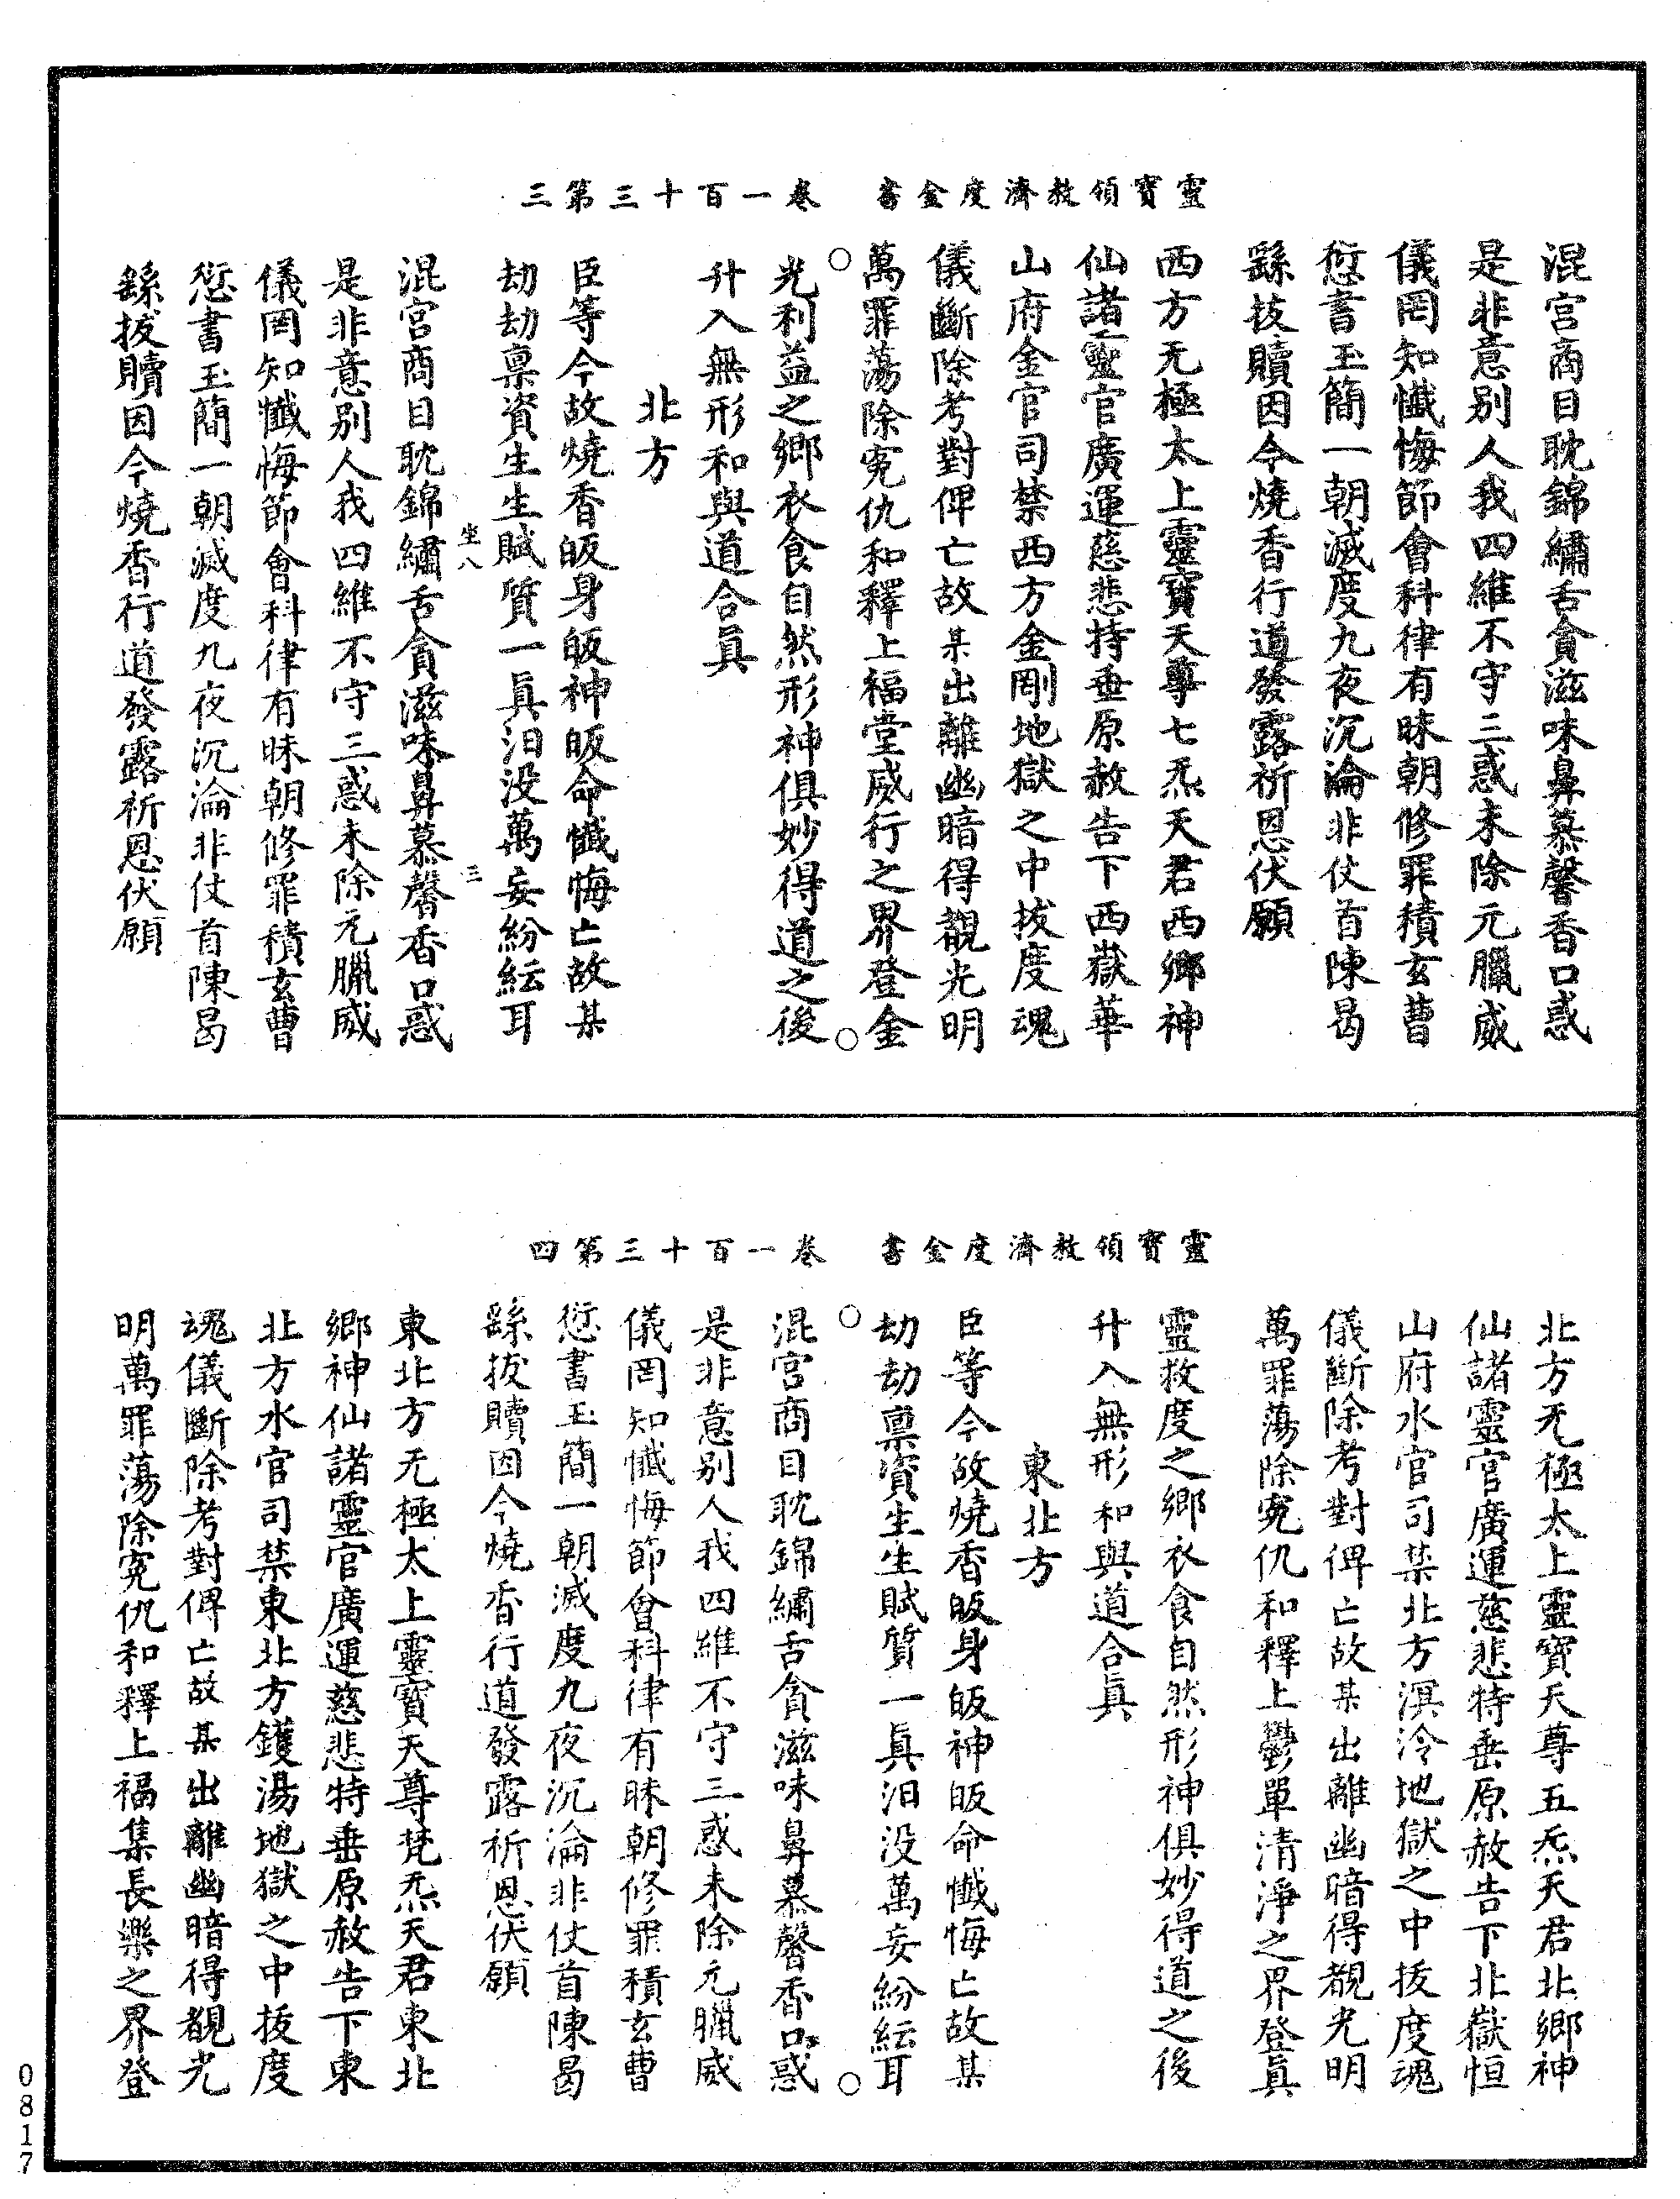 靈寶領教濟度金書　卷一百十三第三
混宮商目耽錦繡舌貪滋味鼻慕馨香口惑
是非意别人我四維不守三惑未除元臘威
儀罔知懺悔節會科律有昧朝修罪積玄曹
愆書玉簡一朝滅度九夜沉淪非仗首陳曷
繇拔贖因今燒香行道發露祈恩伏願
西方无極太上靈寶天尊七炁天君西鄉神
仙諸靈官廣運慈悲特垂原赦告下西嶽華
山府金官司禁西方金剛地獄之中拔度魂
儀斷除考對俾亡故某出離幽暗得覩光明
萬罪蕩除寃仇和釋上福堂威行之界登金
光利益之鄉衣食自然形神俱妙得道之後
升入無形和與道合眞
北方
臣等今故燒香皈身皈神皈命懺悔亡故某
劫劫禀資生生賦質一眞汨没萬妄紛紜耳
坐八　三
混宮商目耽錦繡舌貪滋味鼻慕馨香口惑
是非意别人我四維不守三惑未除元臘威
儀罔知懺悔節會科律有昧朝修罪積玄曹
愆書玉簡一朝滅度九夜沉淪非仗首陳曷
繇拔贖因今燒香行道發露祈恩伏願
靈寶領教濟度金書　卷一百十三第四
北方无極太上靈寶天尊五炁天君北鄉神
仙諸靈官廣運慈悲特垂原赦告下北嶽恒
山府水官司禁北方溟泠地獄之中拔度魂
儀斷除考對俾亡故某出離幽暗得覩光明
萬罪蕩除寃仇和釋上鬱單清淨之界登眞
靈救度之鄉衣食自然形神俱妙得道之後
升入無形和與道合眞
東北方
臣等今故燒香皈身皈神皈命懺悔亡故某
劫劫禀資生生賦質一眞汨没萬妄紛紜耳
混宮商目耽錦繡舌貪滋味鼻慕馨香口惑
是非意别人我四維不守三惑未除元臘威
儀罔知懺悔節會科律有昧朝修罪積玄曹
愆書玉簡一朝滅度九夜沉淪非仗首陳曷
繇拔贖因今燒香行道發露祈恩伏願
東北方无極太上靈寶天尊梵炁天君東北
鄉神仙諸靈官廣運慈悲特垂原赦告下東
北方水官司禁東北方鑊湯地獄之中拔度
魂儀斷除考對俾亡故某出離幽暗得覩光
明萬罪蕩除寃仇和釋上福集長樂之界登
0817